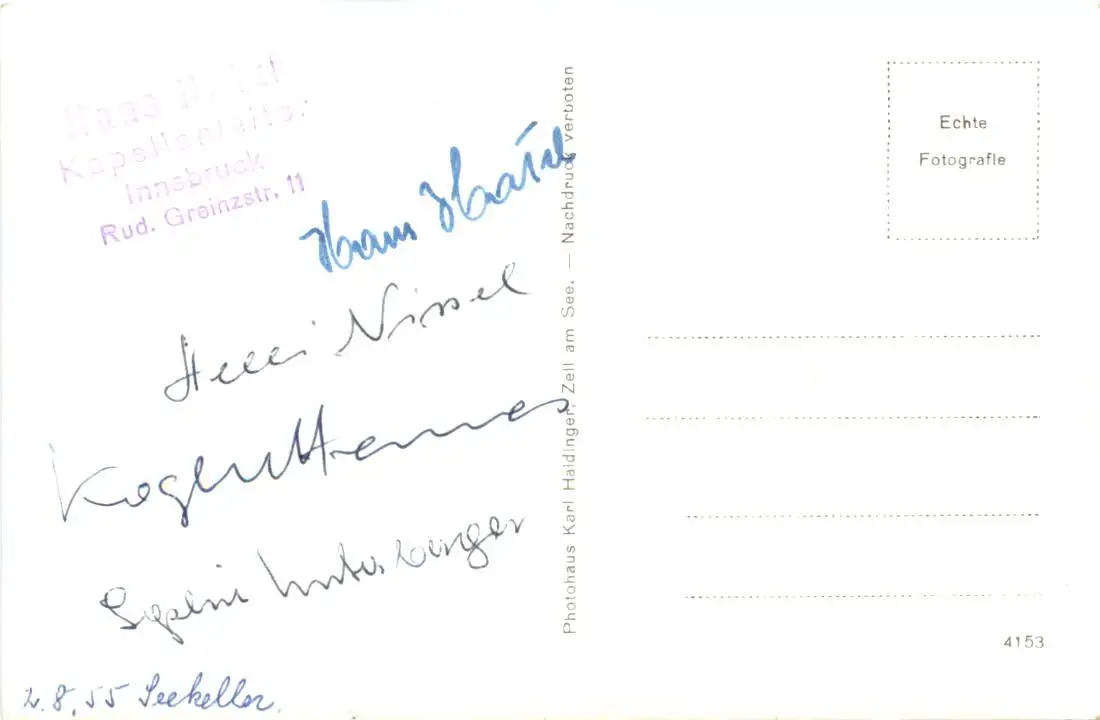 Hans
Kapellenleiter
Innsbruck
Rud. Greinzstr. 11
Hans
Helli Nissel
Hannes
Unterberger
2.8.55 Seekeller.
Photohaus Karl Haidinger, Zell am See. — Nachdruck verboten
Echte
Fotografie
4153